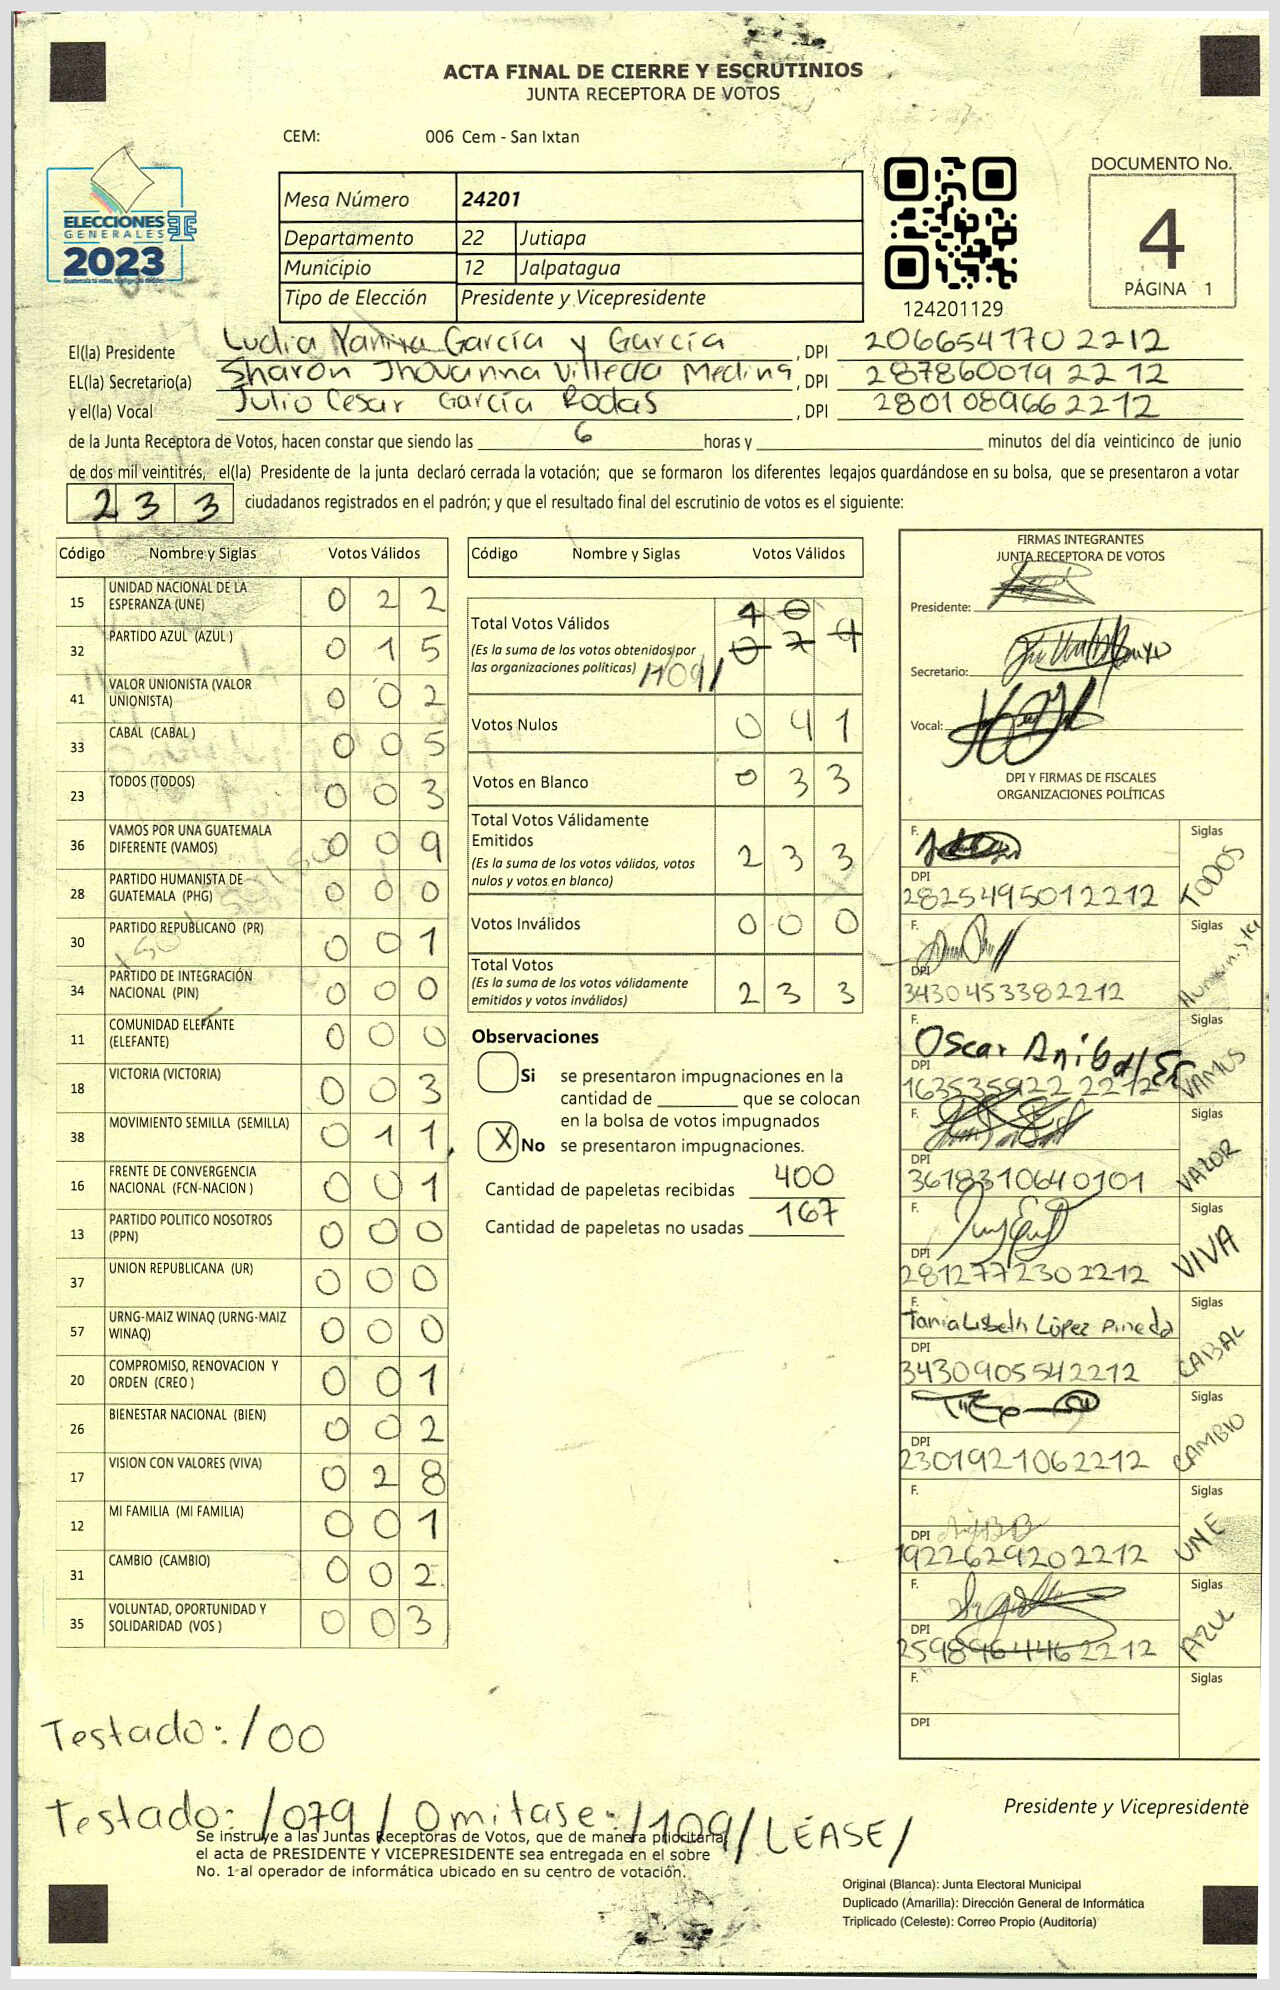 ACTA FINAL DE CIERRE Y ESCRUTINIOS
JUNTA RECEPTORA DE VOTOS
CEM: 006 Cem - San Ixtan
ELECCIONES
GENERALES
2023
Mesa Número 24201
Departamento 22 Jutiapa
Municipio 12 Jalpatagua
Tipo de Elección Presidente y Vicepresidente
124201129
DOCUMENTO No.
4
PÁGINA 1
El(la) Presidente Ludia Yanira García y García , DPI 2066541702212
EL(la) Secretario(a) Sharon Jhovanna Villeda Medina , DPI 2878600192212
y el(la) Vocal Julio Cesar García Rodas , DPI 2801089662212
de la Junta Receptora de Votos, hacen constar que siendo las 6 horas y minutos del día veinticinco de junio
de dos mil veintitrés, el(la) Presidente de la junta declaró cerrada la votación; que se formaron los diferentes legajos guardándose en su bolsa, que se presentaron a votar
233 ciudadanos registrados en el padrón; y que el resultado final del escrutinio de votos es el siguiente:
Código Nombre y Siglas Votos Válidos
15 UNIDAD NACIONAL DE LA ESPERANZA (UNE) 0 2 2
32 PARTIDO AZUL (AZUL ) 0 1 5
41 VALOR UNIONISTA (VALOR UNIONISTA) 0 0 2
33 CABAL (CABAL ) 0 0 5
23 TODOS (TODOS) 0 0 3
36 VAMOS POR UNA GUATEMALA DIFERENTE (VAMOS) 0 0 9
28 PARTIDO HUMANISTA DE GUATEMALA (PHG) 0 0 0
30 PARTIDO REPUBLICANO (PR) 0 0 1
34 PARTIDO DE INTEGRACIÓN NACIONAL (PIN) 0 0 0
11 COMUNIDAD ELEFANTE (ELEFANTE) 0 0 0
18 VICTORIA (VICTORIA) 0 0 3
38 MOVIMIENTO SEMILLA (SEMILLA) 0 1 1
16 FRENTE DE CONVERGENCIA NACIONAL (FCN-NACION ) 0 0 1
13 PARTIDO POLITICO NOSOTROS (PPN) 0 0 0
37 UNION REPUBLICANA (UR) 0 0 0
57 URNG-MAIZ WINAQ (URNG-MAIZ WINAQ) 0 0 0
20 COMPROMISO, RENOVACION Y ORDEN (CREO ) 0 0 1
26 BIENESTAR NACIONAL (BIEN) 0 0 2
17 VISION CON VALORES (VIVA) 0 2 8
12 MI FAMILIA (MI FAMILIA) 0 0 1
31 CAMBIO (CAMBIO) 0 0 2
35 VOLUNTAD, OPORTUNIDAD Y SOLIDARIDAD (VOS ) 0 0 3
Código Nombre y Siglas Votos Válidos
Total Votos Válidos 1 0
(Es la suma de los votos obtenidos por
las organizaciones políticas) /109/ 0 7 9
Votos Nulos 0 4 1
Votos en Blanco 0 3 3
Total Votos Válidamente
Emitidos
(Es la suma de los votos válidos, votos
nulos y votos en blanco) 2 3 3
Votos Inválidos 0 0 0
Total Votos
(Es la suma de los votos válidamente
emitidos y votos inválidos) 2 3 3
Observaciones
Si se presentaron impugnaciones en la
cantidad de que se colocan
en la bolsa de votos impugnados
X No se presentaron impugnaciones.
Cantidad de papeletas recibidas 400
Cantidad de papeletas no usadas 167
FIRMAS INTEGRANTES
JUNTA RECEPTORA DE VOTOS
Presidente:
Secretario:
Vocal:
DPI Y FIRMAS DE FISCALES
ORGANIZACIONES POLÍTICAS
F. Siglas TODOS
DPI 2825495012212
F. Siglas Humanista
DPI 3430453382212
F. Oscar Anibal Siglas VAMOS
DPI 1635359222212
F. Siglas VALOR
DPI 3618310640101
F. Siglas VIVA
DPI 2812772302212
F. Tania Lisbeth López Pineda Siglas CABAL
DPI 3430905542212
Siglas CAMBIO
DPI 2301921062212
F. Siglas UNE
DPI 1922629202212
F. Siglas AZUL
DPI 2598964462212
F. Siglas
DPI
Testado: /00
Testado: /079/ Omitase: /109/ LÉASE/
Presidente y Vicepresidente
Se instruye a las Juntas Receptoras de Votos, que de manera prioritaria
el acta de PRESIDENTE Y VICEPRESIDENTE sea entregada en el sobre
No. 1 al operador de informática ubicado en su centro de votación.
Original (Blanca): Junta Electoral Municipal
Duplicado (Amarilla): Dirección General de Informática
Triplicado (Celeste): Correo Propio (Auditoría)